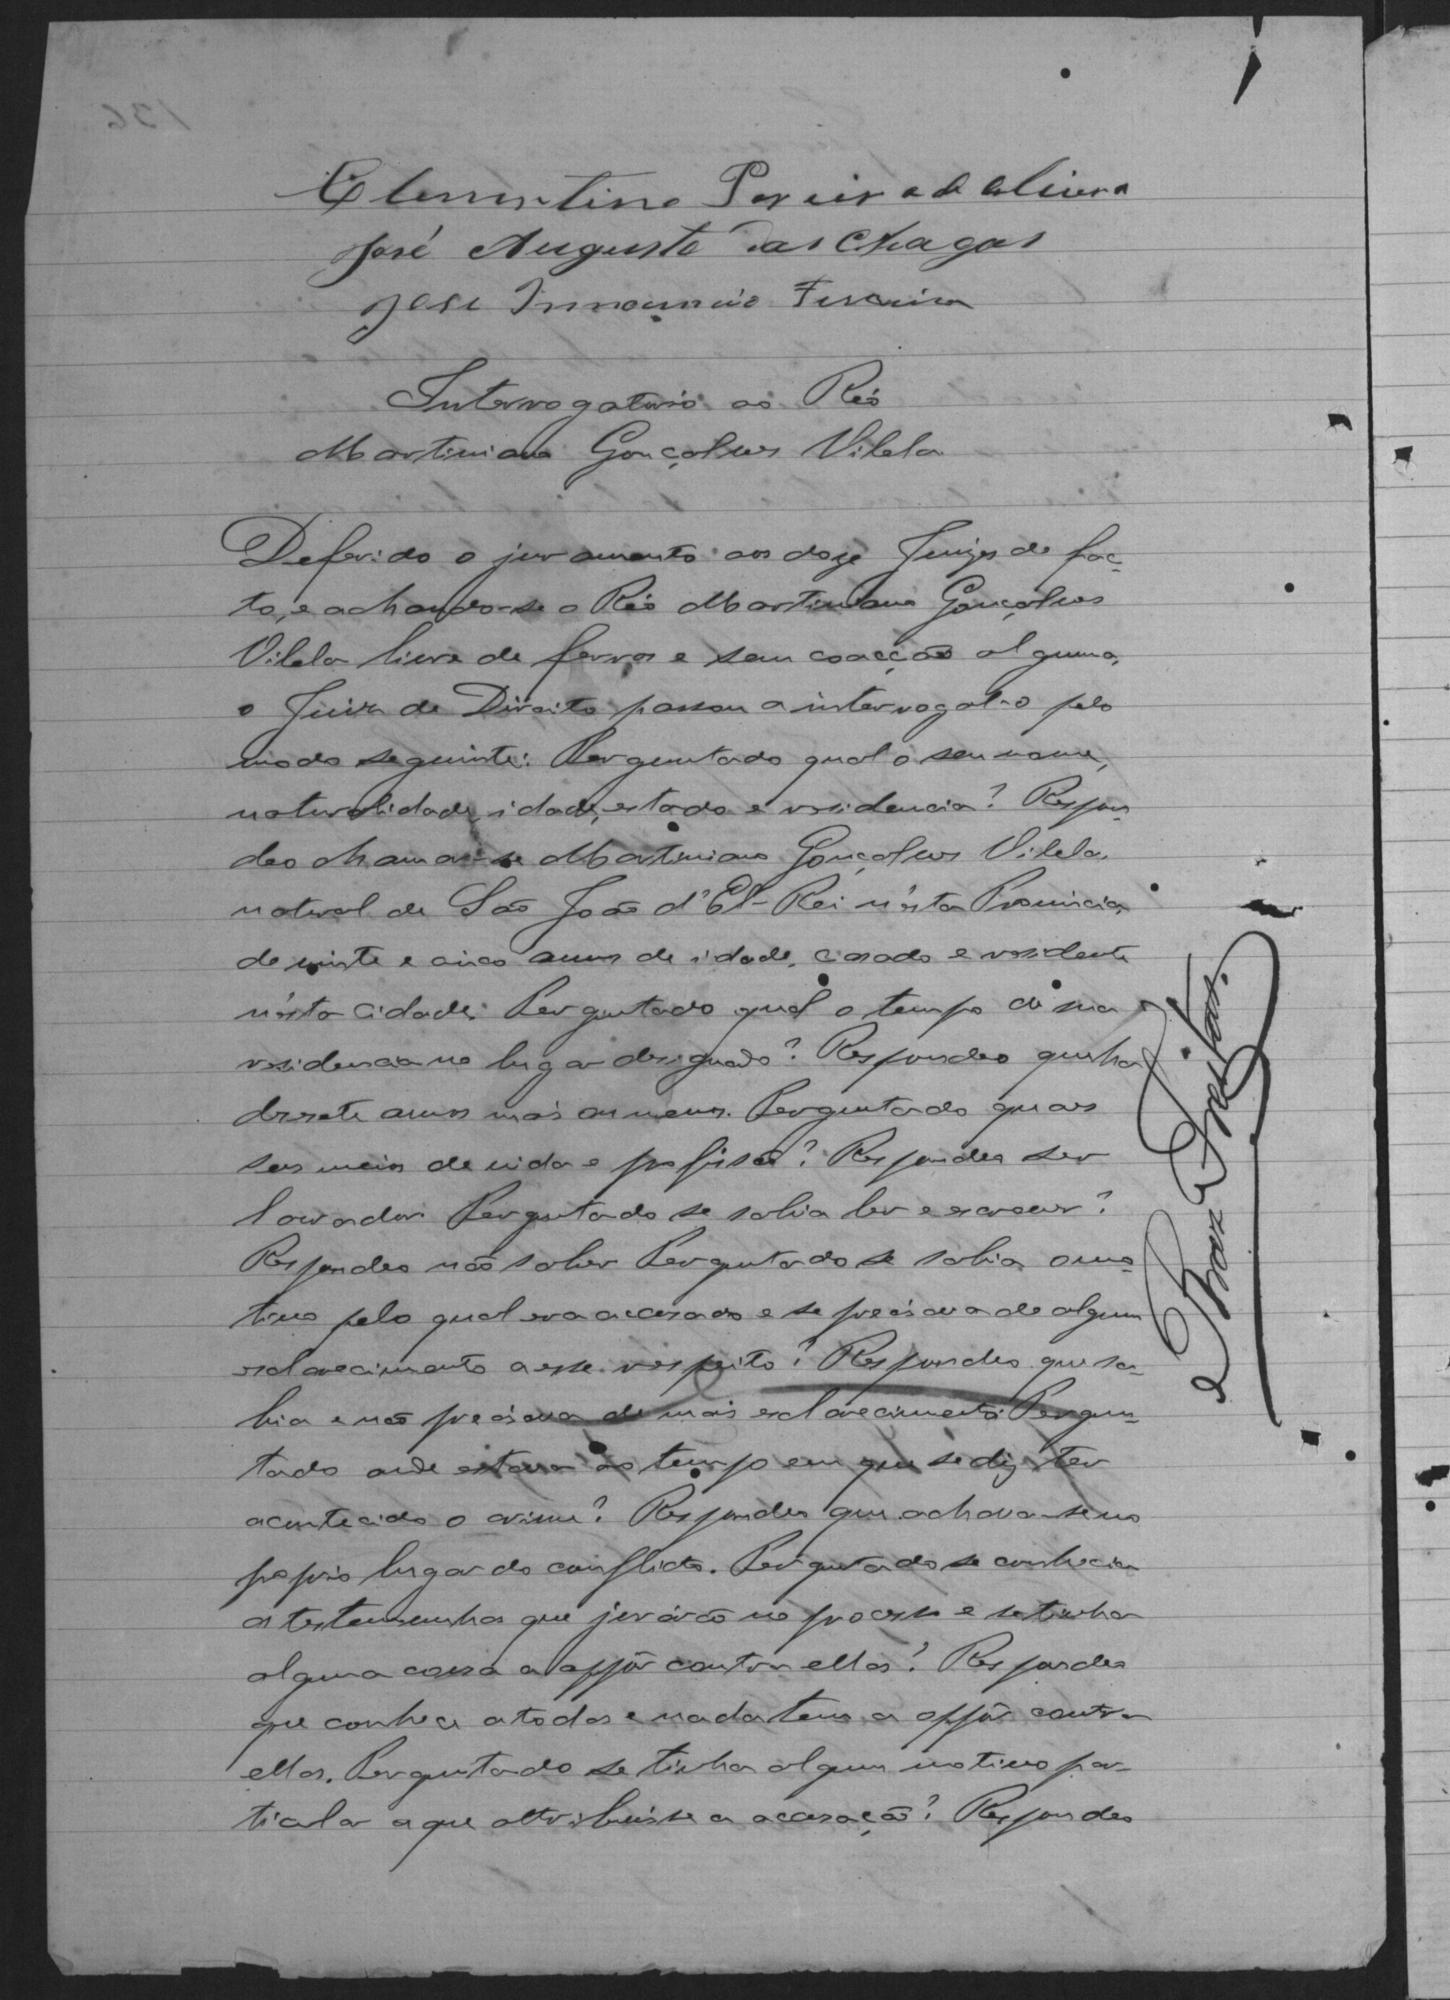 Clementino Pereira de Oliveira
José Augusto das Chagas
Jose Innocencio Ferreira
Interrogatorio ao Réo
Martiniano Gonçalves Vilela
Deferido o juramento aos doze Juizes de fac-
to, e achando-se o Réo Martiniano Gonçalves
Vilela livre de ferros e sem coacção alguma,
o Juiz de Direito passou a interrogal-o pelo
modo seguinte: Perguntado qual o seu nome,
naturalidade, idade, estado e residencia? Respon-
deo chamar-se Martiniano Gonçalves Vilela,
natural de São João d'El-Rei n'ésta Provincia,
de vinte e cinco annos de idade, casado e residente
n'ésta cidade. Perguntado qual o tempo de sua
residencia no lugar designado? Respondeo que ha
desete annos mais ou menos. Perguntado quaes
seus meios de vida e profissão? Respondeo ser
lavrador. Perguntado se sabia ler e escrever?
Respondeo não saber. Perguntado se sabia o mo-
tivo pelo qual era accusado e se precisava de algum
esclarecimento a esse respeito? Respondeo que sa-
bia e não precisava de mais esclarecimento. Pergun-
tado onde estava ao tempo em que se diz ter
acontecido o crime? Respondeo que achava-se no
proprio lugar do conflicto. Perguntado se conhecia
as testemunhas que jurárão no processo e se tinha
alguma cousa a oppôr contra ellas? Respondeo
que conhece a todas e nada tem a oppôr contra
ellas. Perguntado se tinha algum motivo par-
ticular a que attribuisse a accusação? Respondeo
Braz Freitas.
136